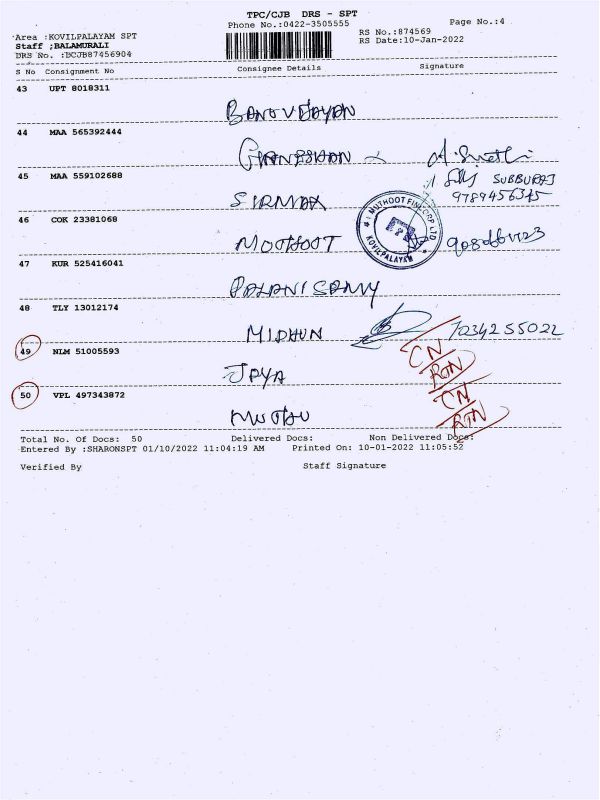 TPC/CJB DRS - SPT
Phone No.:0422-3505555
Page No.:4
Area :KOVILPALAYAM SPT
RS No.:874569
Staff ;BALAMURALI
RS Date:10-Jan-2022
DRS No. :DCJB87456904
S No Consignment No Consignee Details Signature
43 UPT 8018311
44 MAA 565392444
45 MAA 559102688
SUBBURAJ
9789456345
46 COK 23381068
MUTHOOT FINCORP LTD
KOVILPALAYAM
MOOTHOOT
47 KUR 525416041
PALANISAMY
48 TLY 13012174
MIDHUN
49 NLM 51005593
CN
RTN
JAYA
50 VPL 497343872
CN
RTN
MUTHU
Total No. Of Docs: 50 Delivered Docs: Non Delivered Docs:
Entered By :SHARONSPT 01/10/2022 11:04:19 AM Printed On: 10-01-2022 11:05:52
Verified By Staff Signature